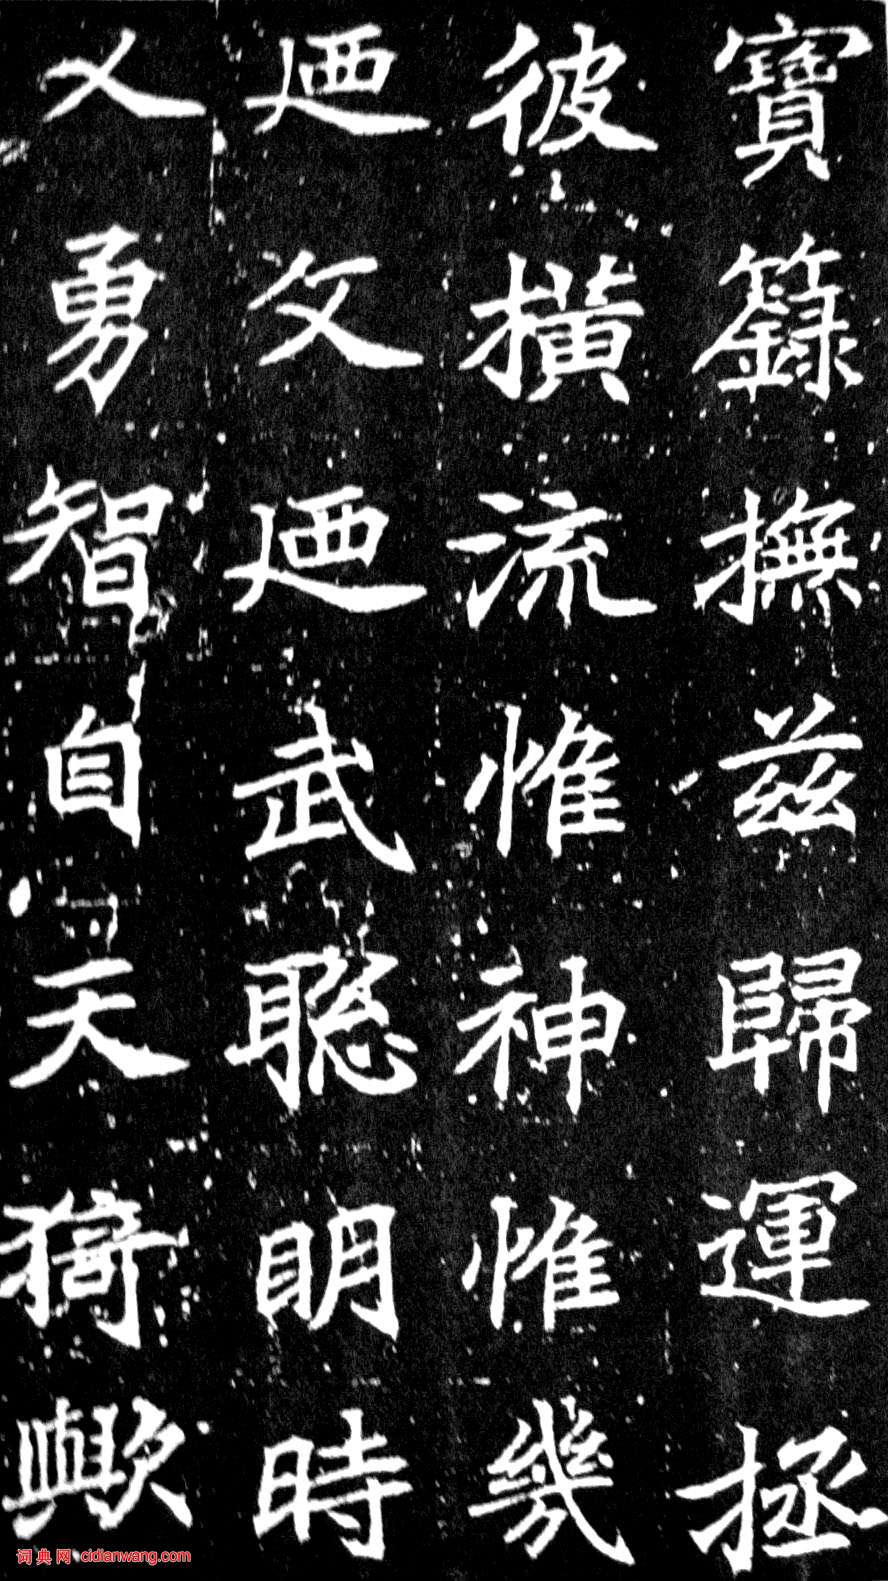 寶籙撫兹歸運拯
彼橫流惟神惟幾
迺文迺武聰明時
乂勇智自天猗歟
词典网 cidianwang.com